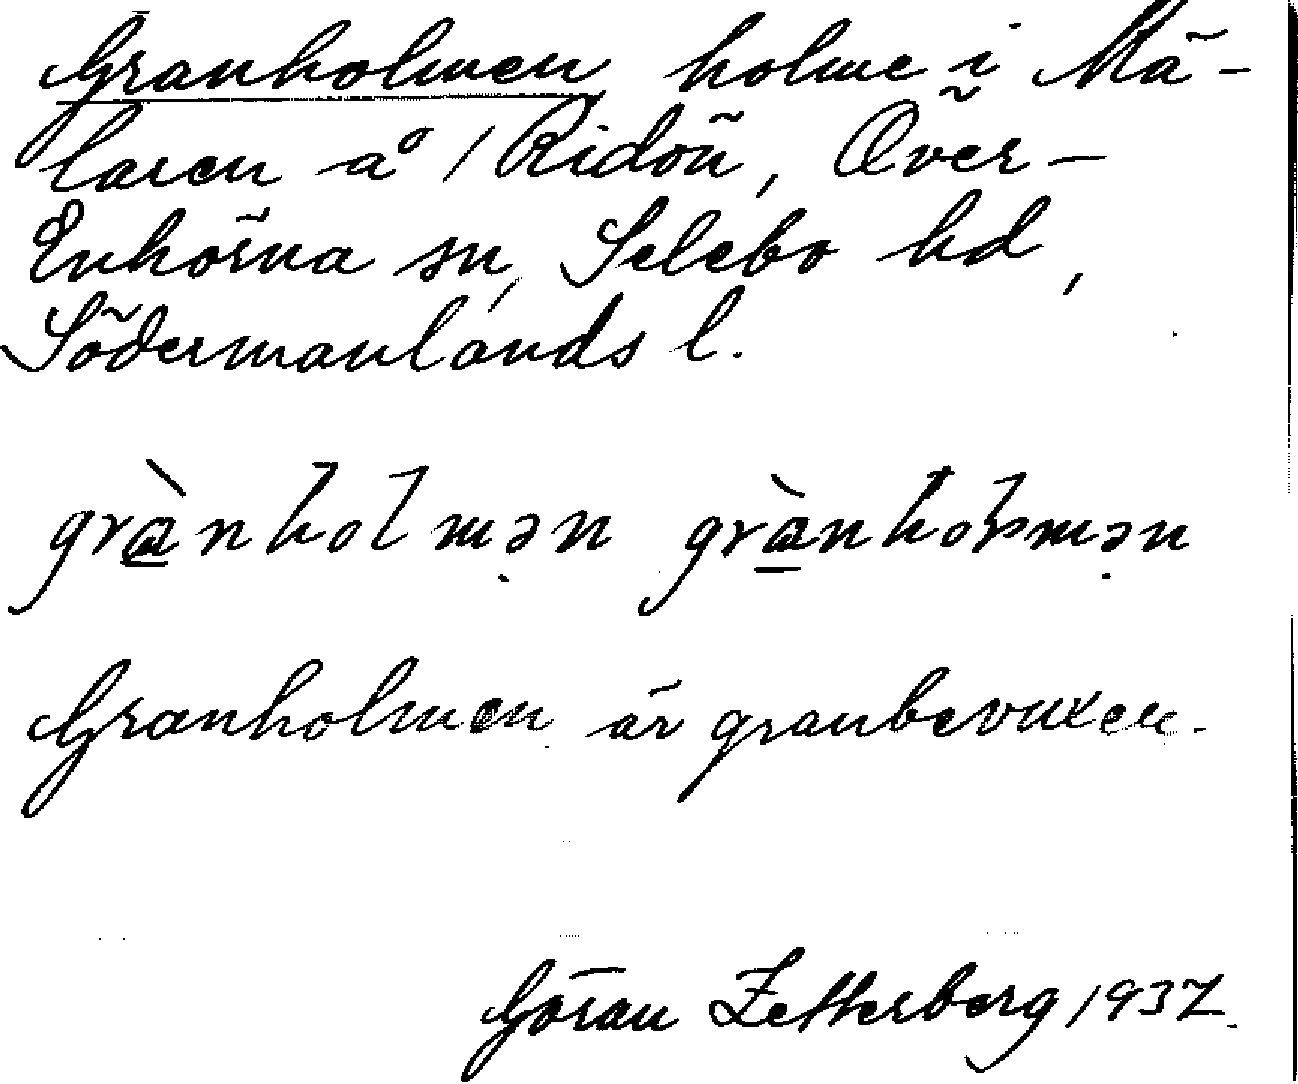 Granholmen, holme i Mä-
laren å / Ridön, Över-
Enhörna sn, Selebo hd,
Södermanlands l.
grànholmən grànholmən
Granholmen är granbevuxen.
Göran Zetterberg 1937.